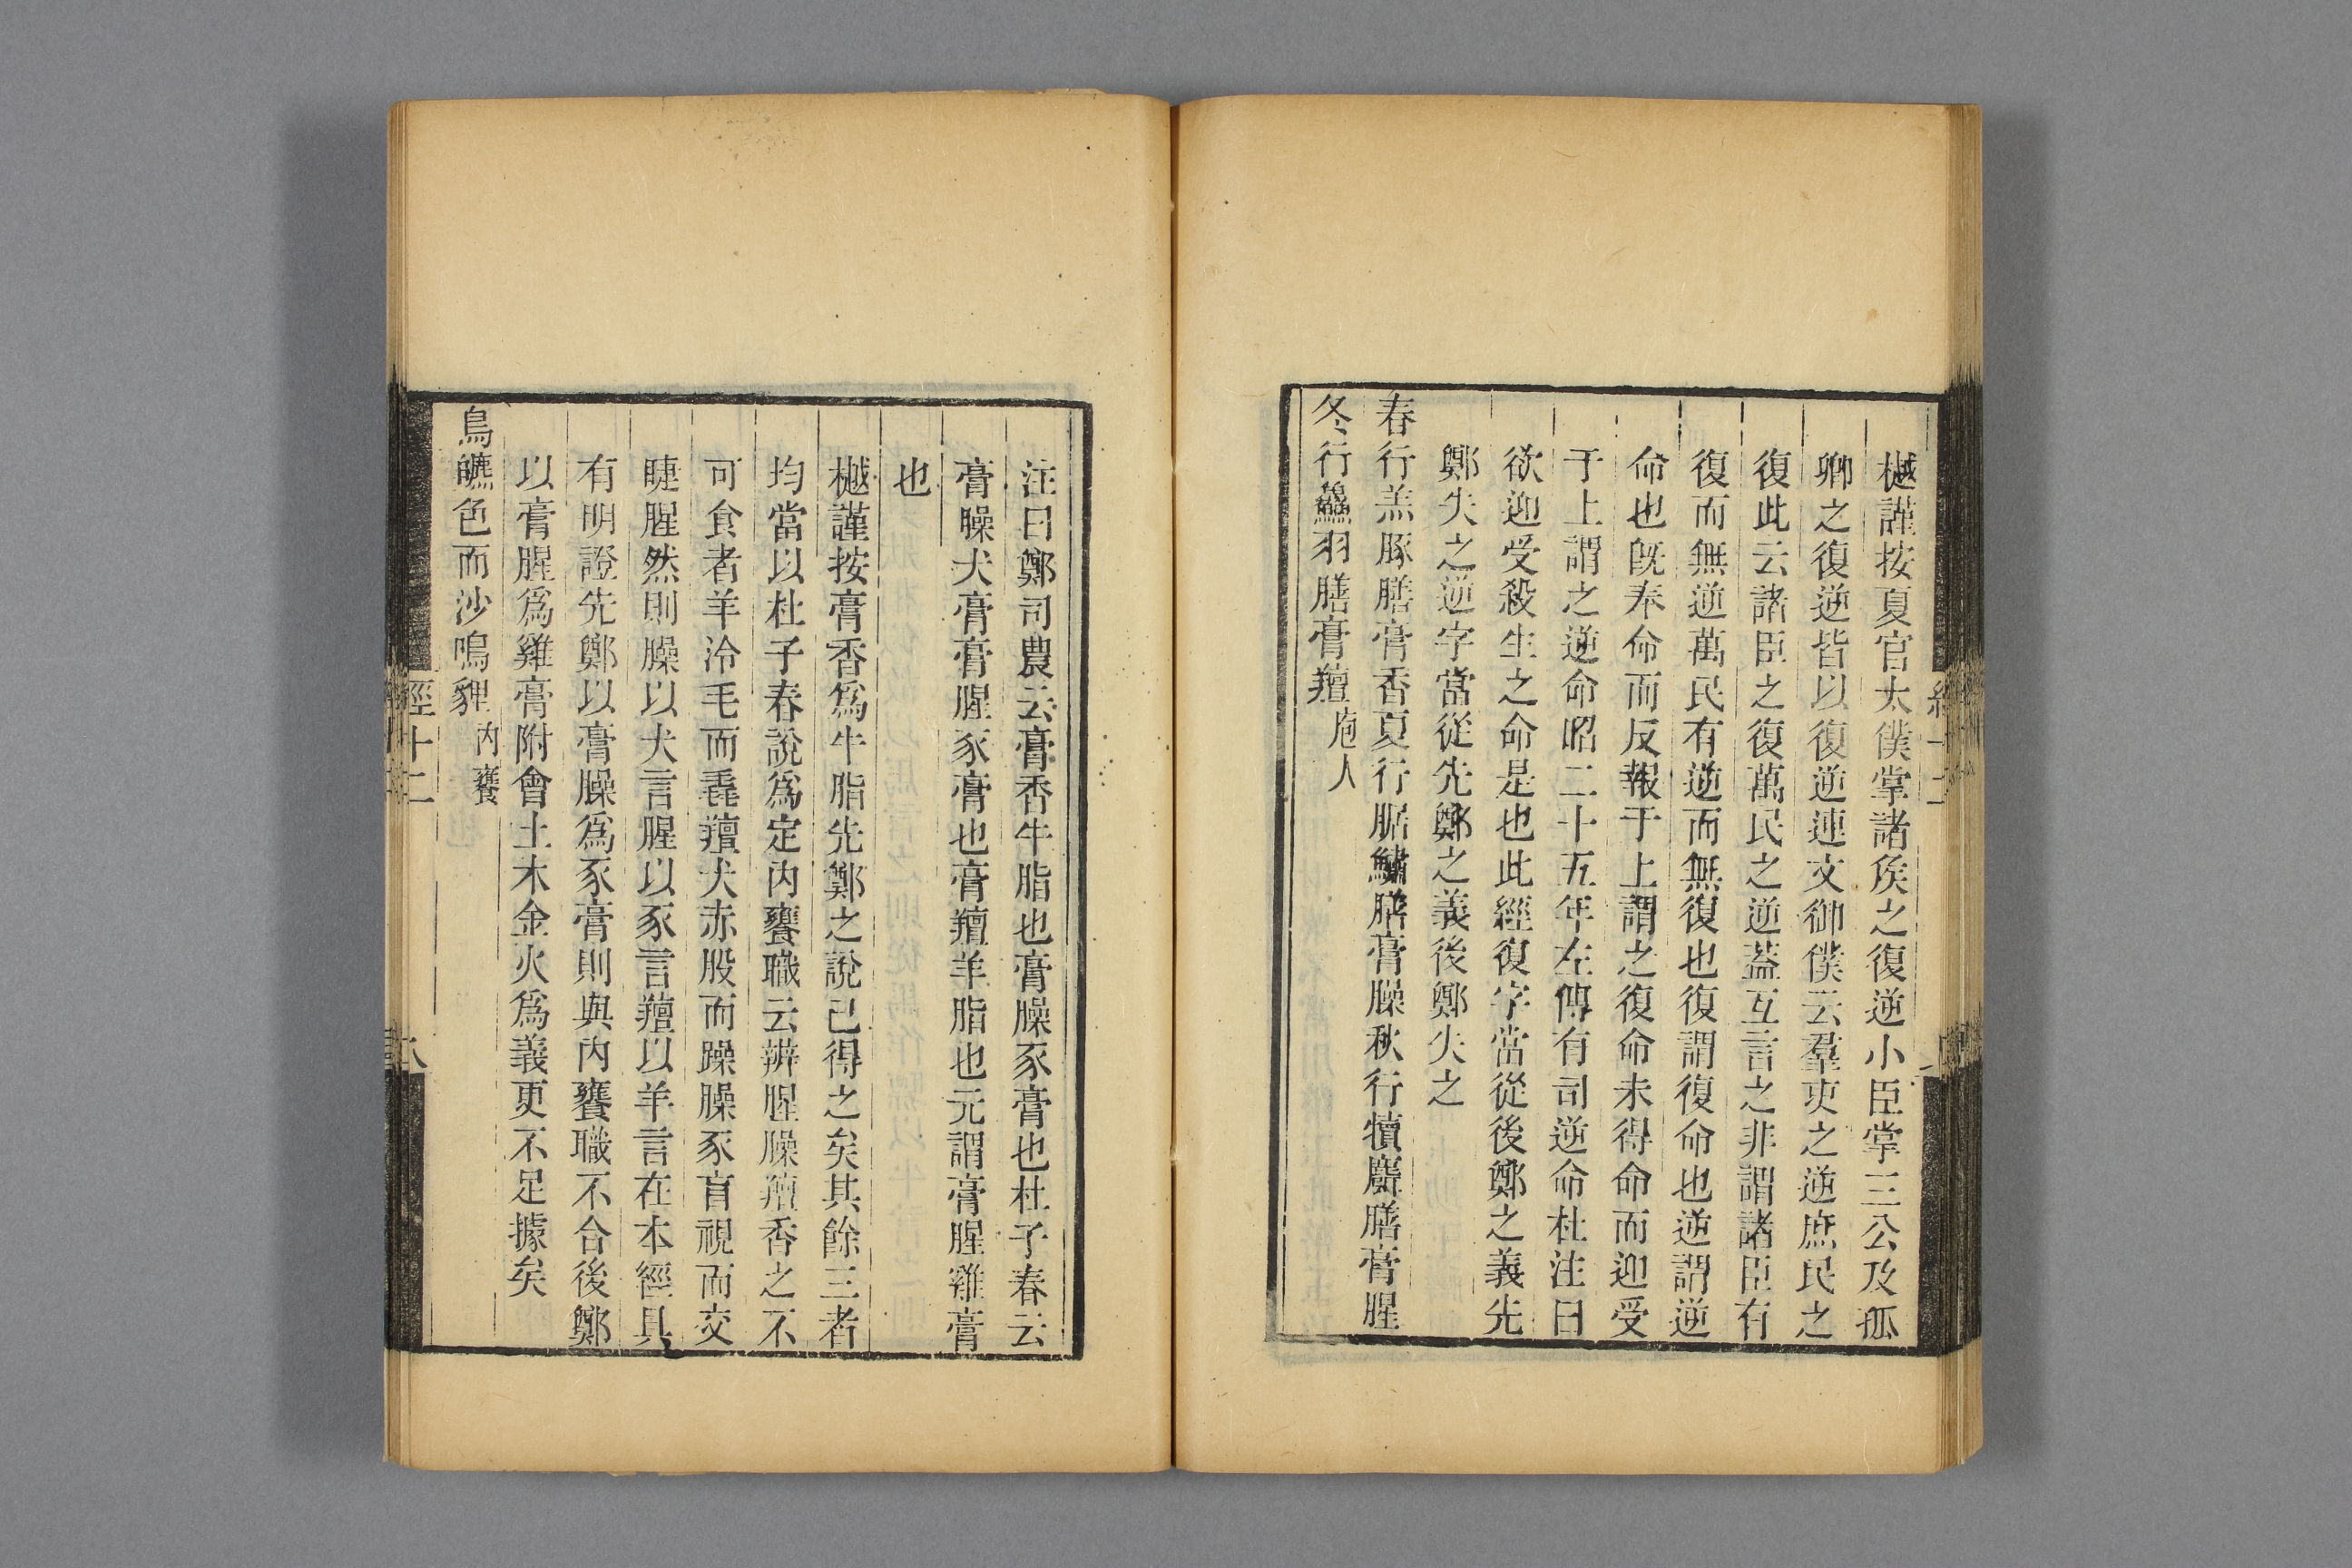 樾謹按夏官太僕掌諸侯之復逆小臣掌三公及孤
卿之復逆皆以復逆連文御僕云羣吏之逆庶民之
復此云諸臣之復萬民之逆蓋互言之非謂諸臣有
復而無逆萬民有逆而無復也復謂復命也逆謂逆
命也旣奉命而反報于上謂之復命未得命而迎受
于上謂之逆命昭二十五年左傳有司逆命杜注曰
欲迎受殺生之命是也此經復字當從後鄭之義先
鄭失之逆字當從先鄭之義後鄭失之
春行羔豚膳膏香夏行腒鱐膳膏臊秋行犢麛膳膏腥
冬行鱻羽膳膏羶庖人
注曰鄭司農云膏香牛脂也膏臊豕膏也杜子春云
膏臊犬膏膏腥豕膏也膏羶羊脂也元謂膏腥雞膏
也
樾謹按膏香爲牛脂先鄭之說已得之矣其餘三者
均當以杜子春說爲定內饔職云辨腥臊羶香之不
可食者羊泠毛而毳羶犬赤股而躁臊豕盲視而交
睫腥然則臊以犬言腥以豕言羶以羊言在本經具
有明證先鄭以膏臊爲豕膏則與內饔職不合後鄭
以膏腥爲雞膏附會土木金火爲義更不足據矣
鳥皫色而沙鳴貍內饔
經十二
八